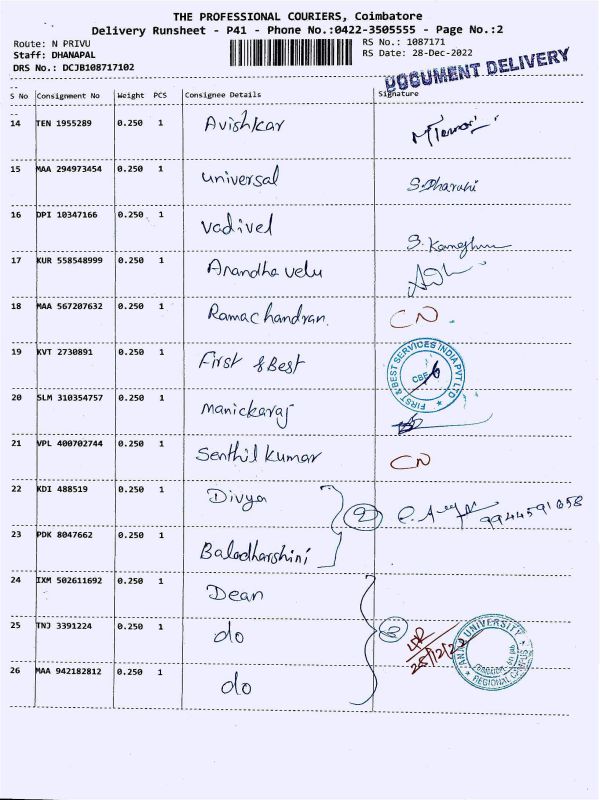 THE PROFESSIONAL COURIERS, Coimbatore
Delivery Runsheet - P41 - Phone No.:0422-3505555 - Page No.:2
Route: N PRIVU RS No.: 1087171
Staff: DHANAPAL RS Date: 28-Dec-2022
DRS No.: DCJB108717102
DOCUMENT DELIVERY
S No Consignment No Weight PCS Consignee Details Signature
14 TEN 1955289 0.250 1 Avishkar
15 MAA 294973454 0.250 1 universal S.Dharani
16 DPI 10347166 0.250 1 vadivel
17 KUR 558548999 0.250 1 Anandha velu
18 MAA 567207632 0.250 1 Ramachandran. CN
19 KVT 2730891 0.250 1 First & Best FIRST & BEST SERVICES INDIA PVT LTD CBE-6
20 SLM 310354757 0.250 1 manickaraj
21 VPL 400702744 0.250 1 Senthil kumar CN
22 KDI 488519 0.250 1 Divya 2
23 PDK 8047662 0.250 1 Baladharshini
24 IXM 502611692 0.250 1 Dean
25 TNJ 3391224 0.250 1 do 3 UNIVERSITY REGIONAL CAMPUS
26 MAA 942182812 0.250 1 do